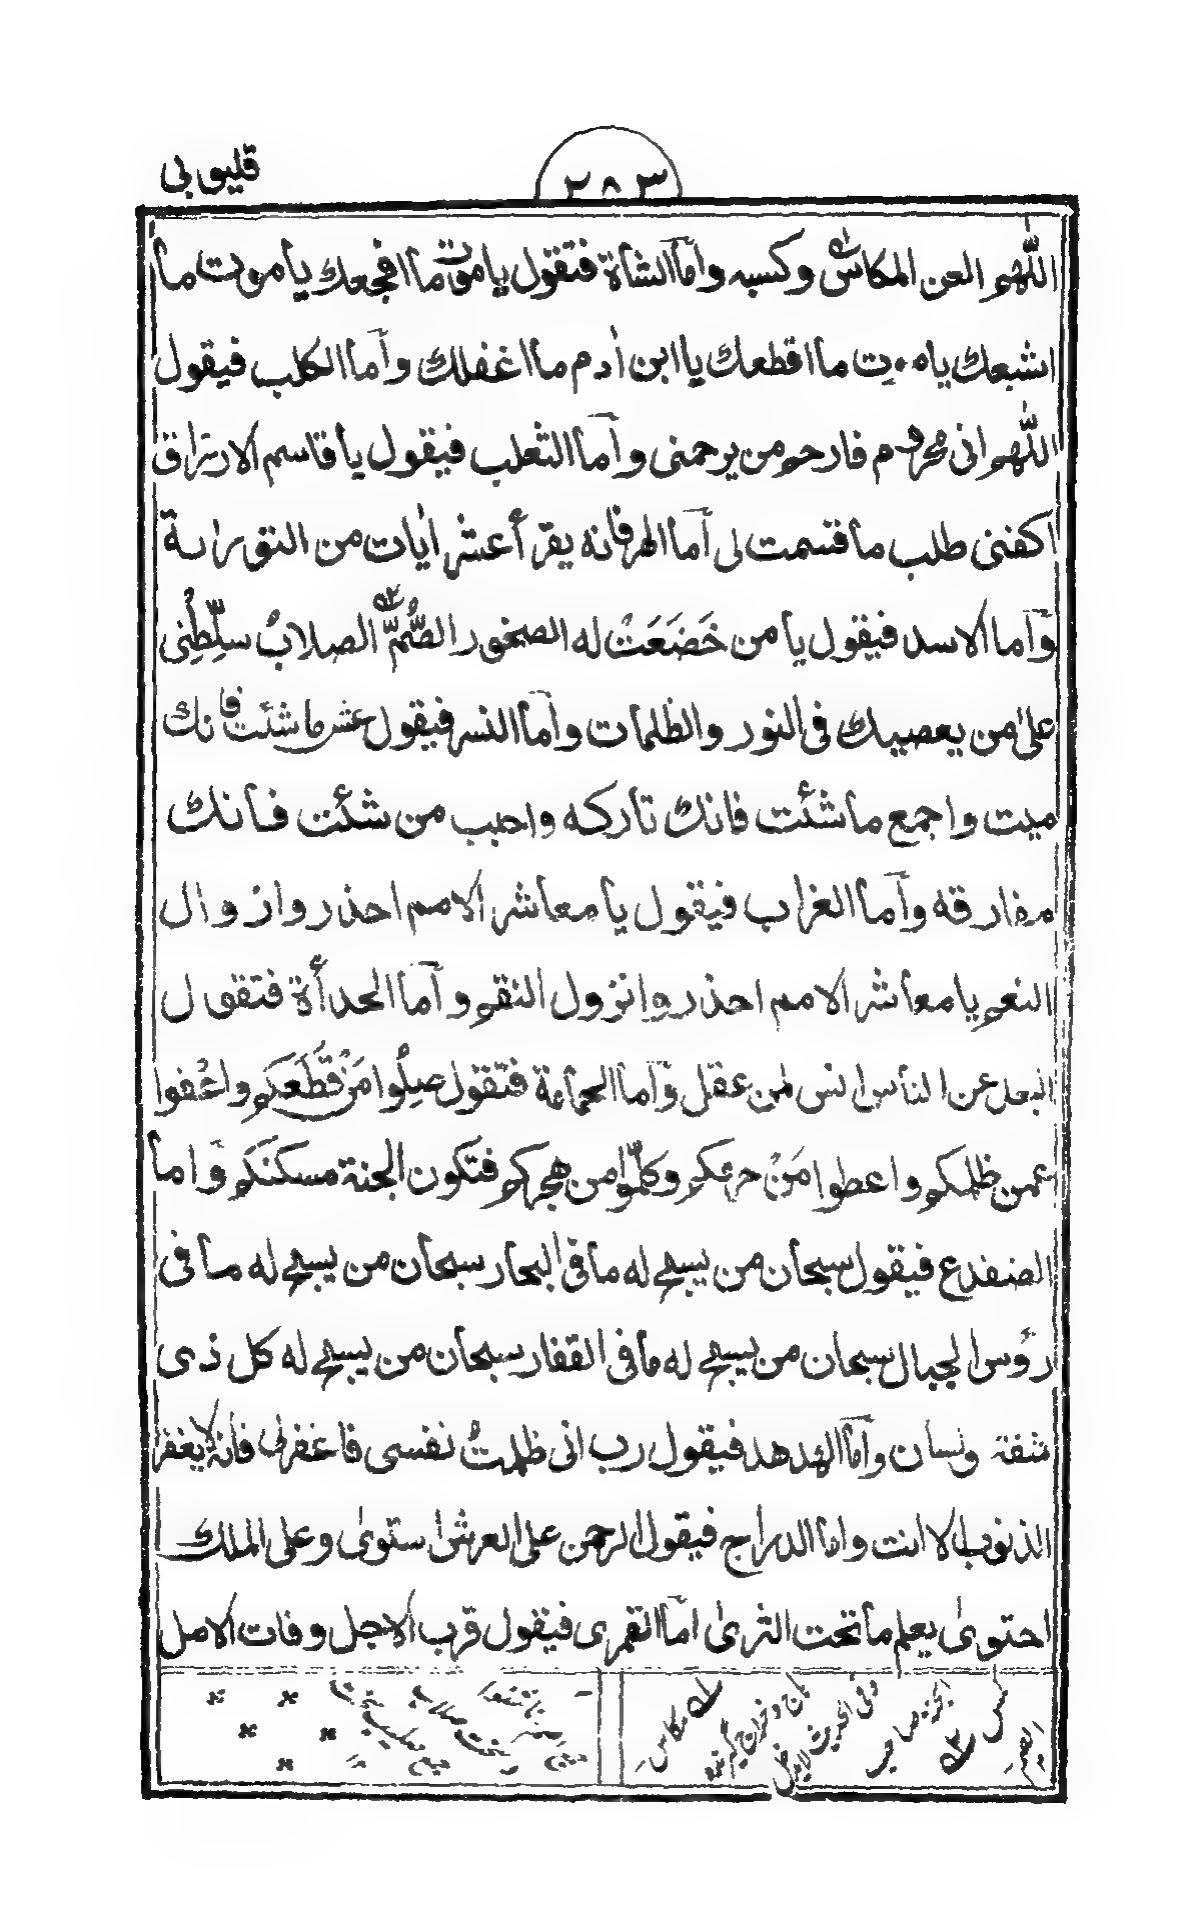 قليوبى
٢٨٣
اللهم العن المكاس وكسبه واما الشاة فتقول ياموت ما افجعك ياموت ما
اشبعك ياموت ما اقطعك يا ابن ادم ما اغفلك واما الكلب فيقول
اللهم انى محروم فارحم من يرحمنى واما الثعلب فيقول ياقاسم الارزاق
اكفنى طلب ماقسمت لى اما الهر فانه يقرأ عشر ايات من التوراىة
واما الاسد فيقول يامن خَضَعَتْ له الصخور الصُّمُّ الصلابُ سلِّطْنِى
على من يعصيك فى النور والظلمات واما النسر فيقول عش ماشئت فانك
ميت واجمع ماشئت فانك تاركه واحبب من شئت فانك
مفارقه واما الغراب فيقول يامعاشر الامم احذروا زوال
النعم يامعاشر الامم احذروا نزول النقم واما الحدأة فتقول
البعد عن الناس انس لمن عقل واما الحمامة فتقول صِلُوا مَنْ قَطَعَكم واعْفوا
عمن ظلمكم واعطوا مَنْ حرمكم وكلّموا من هجركم فتكون الجنة مسكنكم واما
الضفدع فيقول سبحان من يسبح له مافى البحار سبحان من يسبح له مافى
رؤس الجبال سبحان من يسبح له مافى القفار سبحان من يسبح له كل ذى
شفة ولسان واما الهدهد فيقول رب انى ظلمتُ نفسى فاغفرلى فانه لايغفر
الذنوب الا انت واما الدراج فيقول الرحمن على العرش استوى وعلى الملك
احتوى يعلم ماتحت الثرى اما القمرى فيقول قرب الاجل وفات الامل